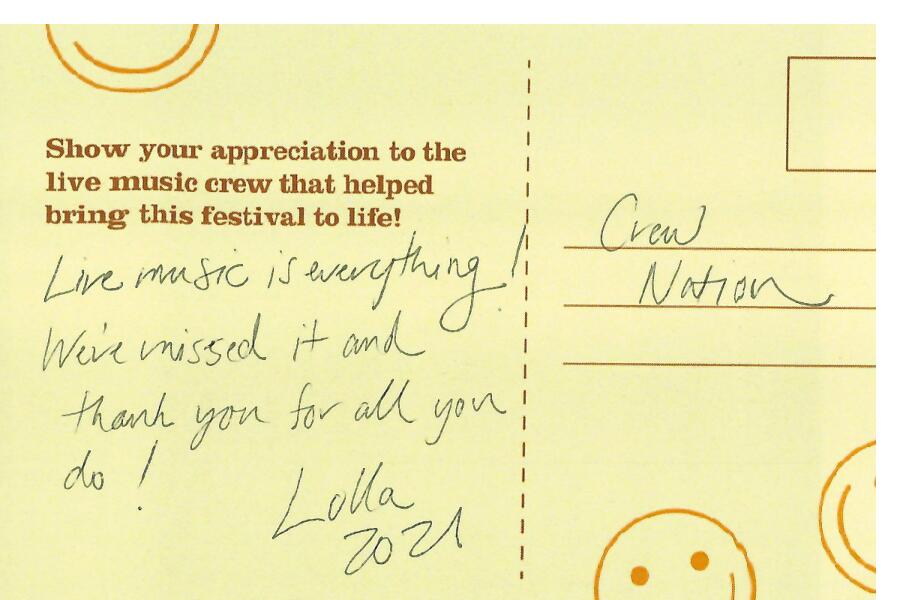 Show your appreciation to the
live music crew that helped
bring this festival to life!
Live music is everything!
We've missed it and
thank you for all you
do!
Lolla
2021
Crew
Nation